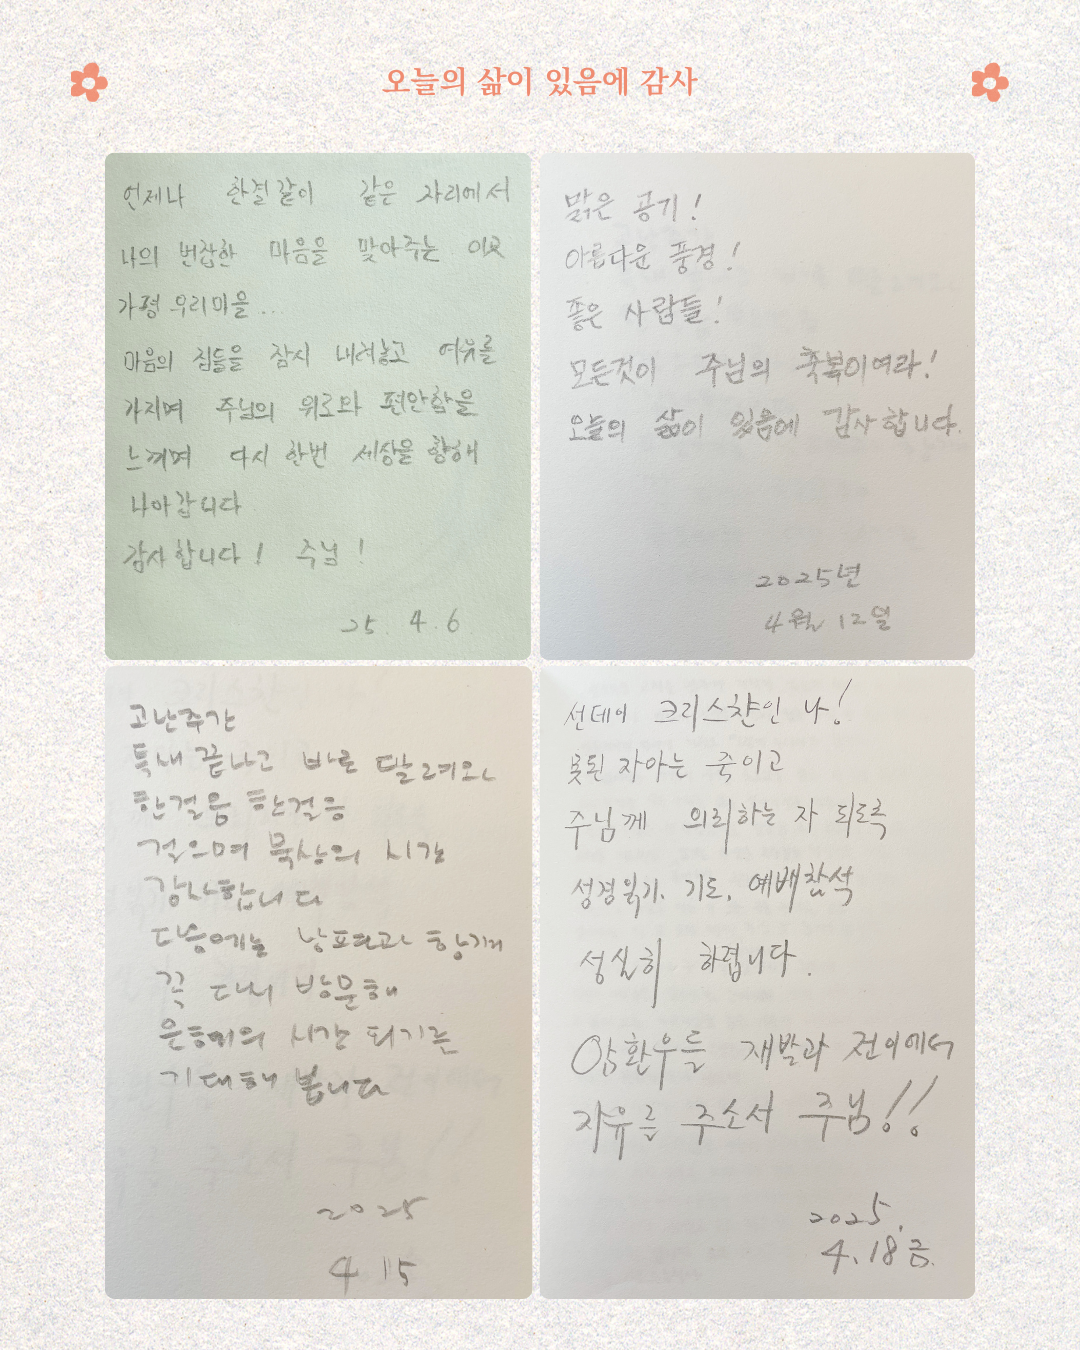 오늘의 삶이 있음에 감사
언제나 한결같이 같은 자리에서
나의 번잡한 마음을 맞아주는 이곳
가평 우리마을...
마음의 짐들을 잠시 내려놓고 여유를
가지며 주님의 위로와 편안함을
느끼며 다시 한번 세상을 향해
나아갑니다
감사합니다! 주님!
25. 4. 6
맑은 공기!
아름다운 풍경!
좋은 사람들!
모든것이 주님의 축복이여라!
오늘의 삶이 있음에 감사합니다.
2025년
4월 12일
고난주간
특새 끝나고 바로 달려와
한걸음 한걸음
걸으며 묵상의 시간
감사합니다
다음에는 남편과 함께
꼭 다시 방문해
은혜의 시간 되기를
기대해 봅니다
2025
4 15
선데이 크리스챤인 나!
못된 자아는 죽이고
주님께 의뢰하는 자 되도록
성경읽기. 기도, 예배참석
성실히 하렵니다.
암환우들 재발과 전이에서
자유를 주소서 주님!!
2025.
4. 18 금.